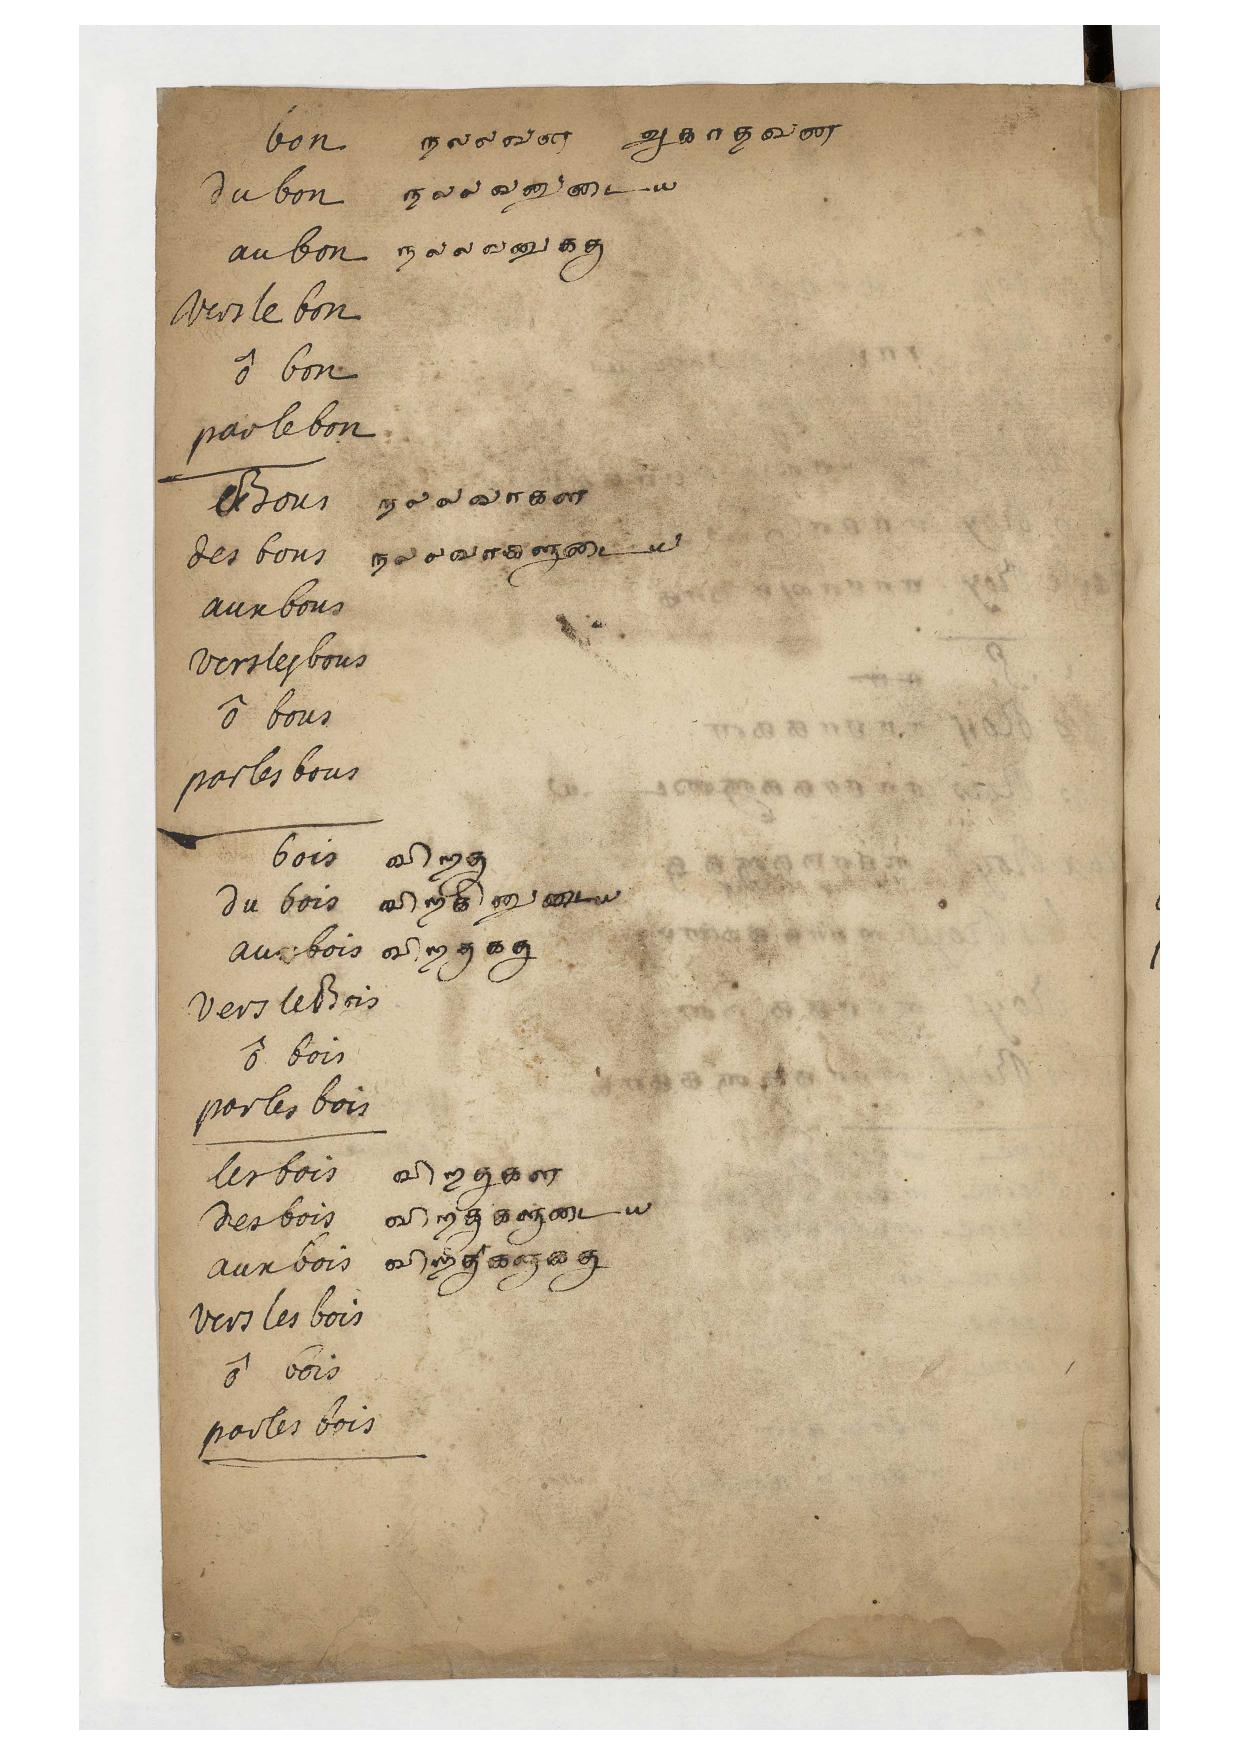 bon நலலவன ஆகாதவன
du bon நலலவனுடைய
au bon நலலவனுககு
vers le bon
ô bon
par le bon
les Bons நலலவாகள
des bons நலலவாகளுடைய
aux bons
vers les bons
ô bons
par les bons
bois விறகு
du bois விறகினுடைய
au bois விறகுககு
vers le Bois
ô bois
par les bois
les bois விறகுகள
des bois விறகுகளுடைய
aux bois விறகுகளுககு
vers les bois
ô bois
par les bois